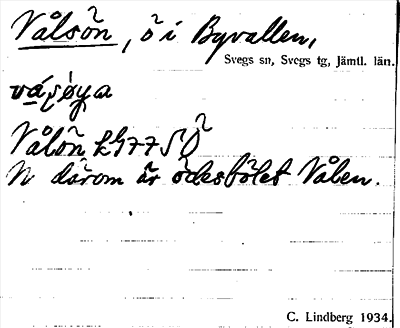 Vålsön, ö i Byvallen,
Svegs sn, Svegs tg, Jämtl. län.
Vålön
N därom är ödesbölet Vålen.
C. Lindberg 1934.